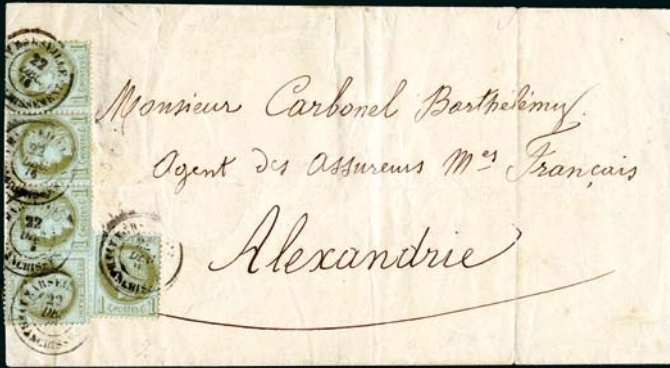 Monsieur Carbonel Barthélémy.
Agent des Assureurs Mes Français
Alexandrie
MARSEILLE
22
DEC
76
22
22
22
DE
POSTES
1
1